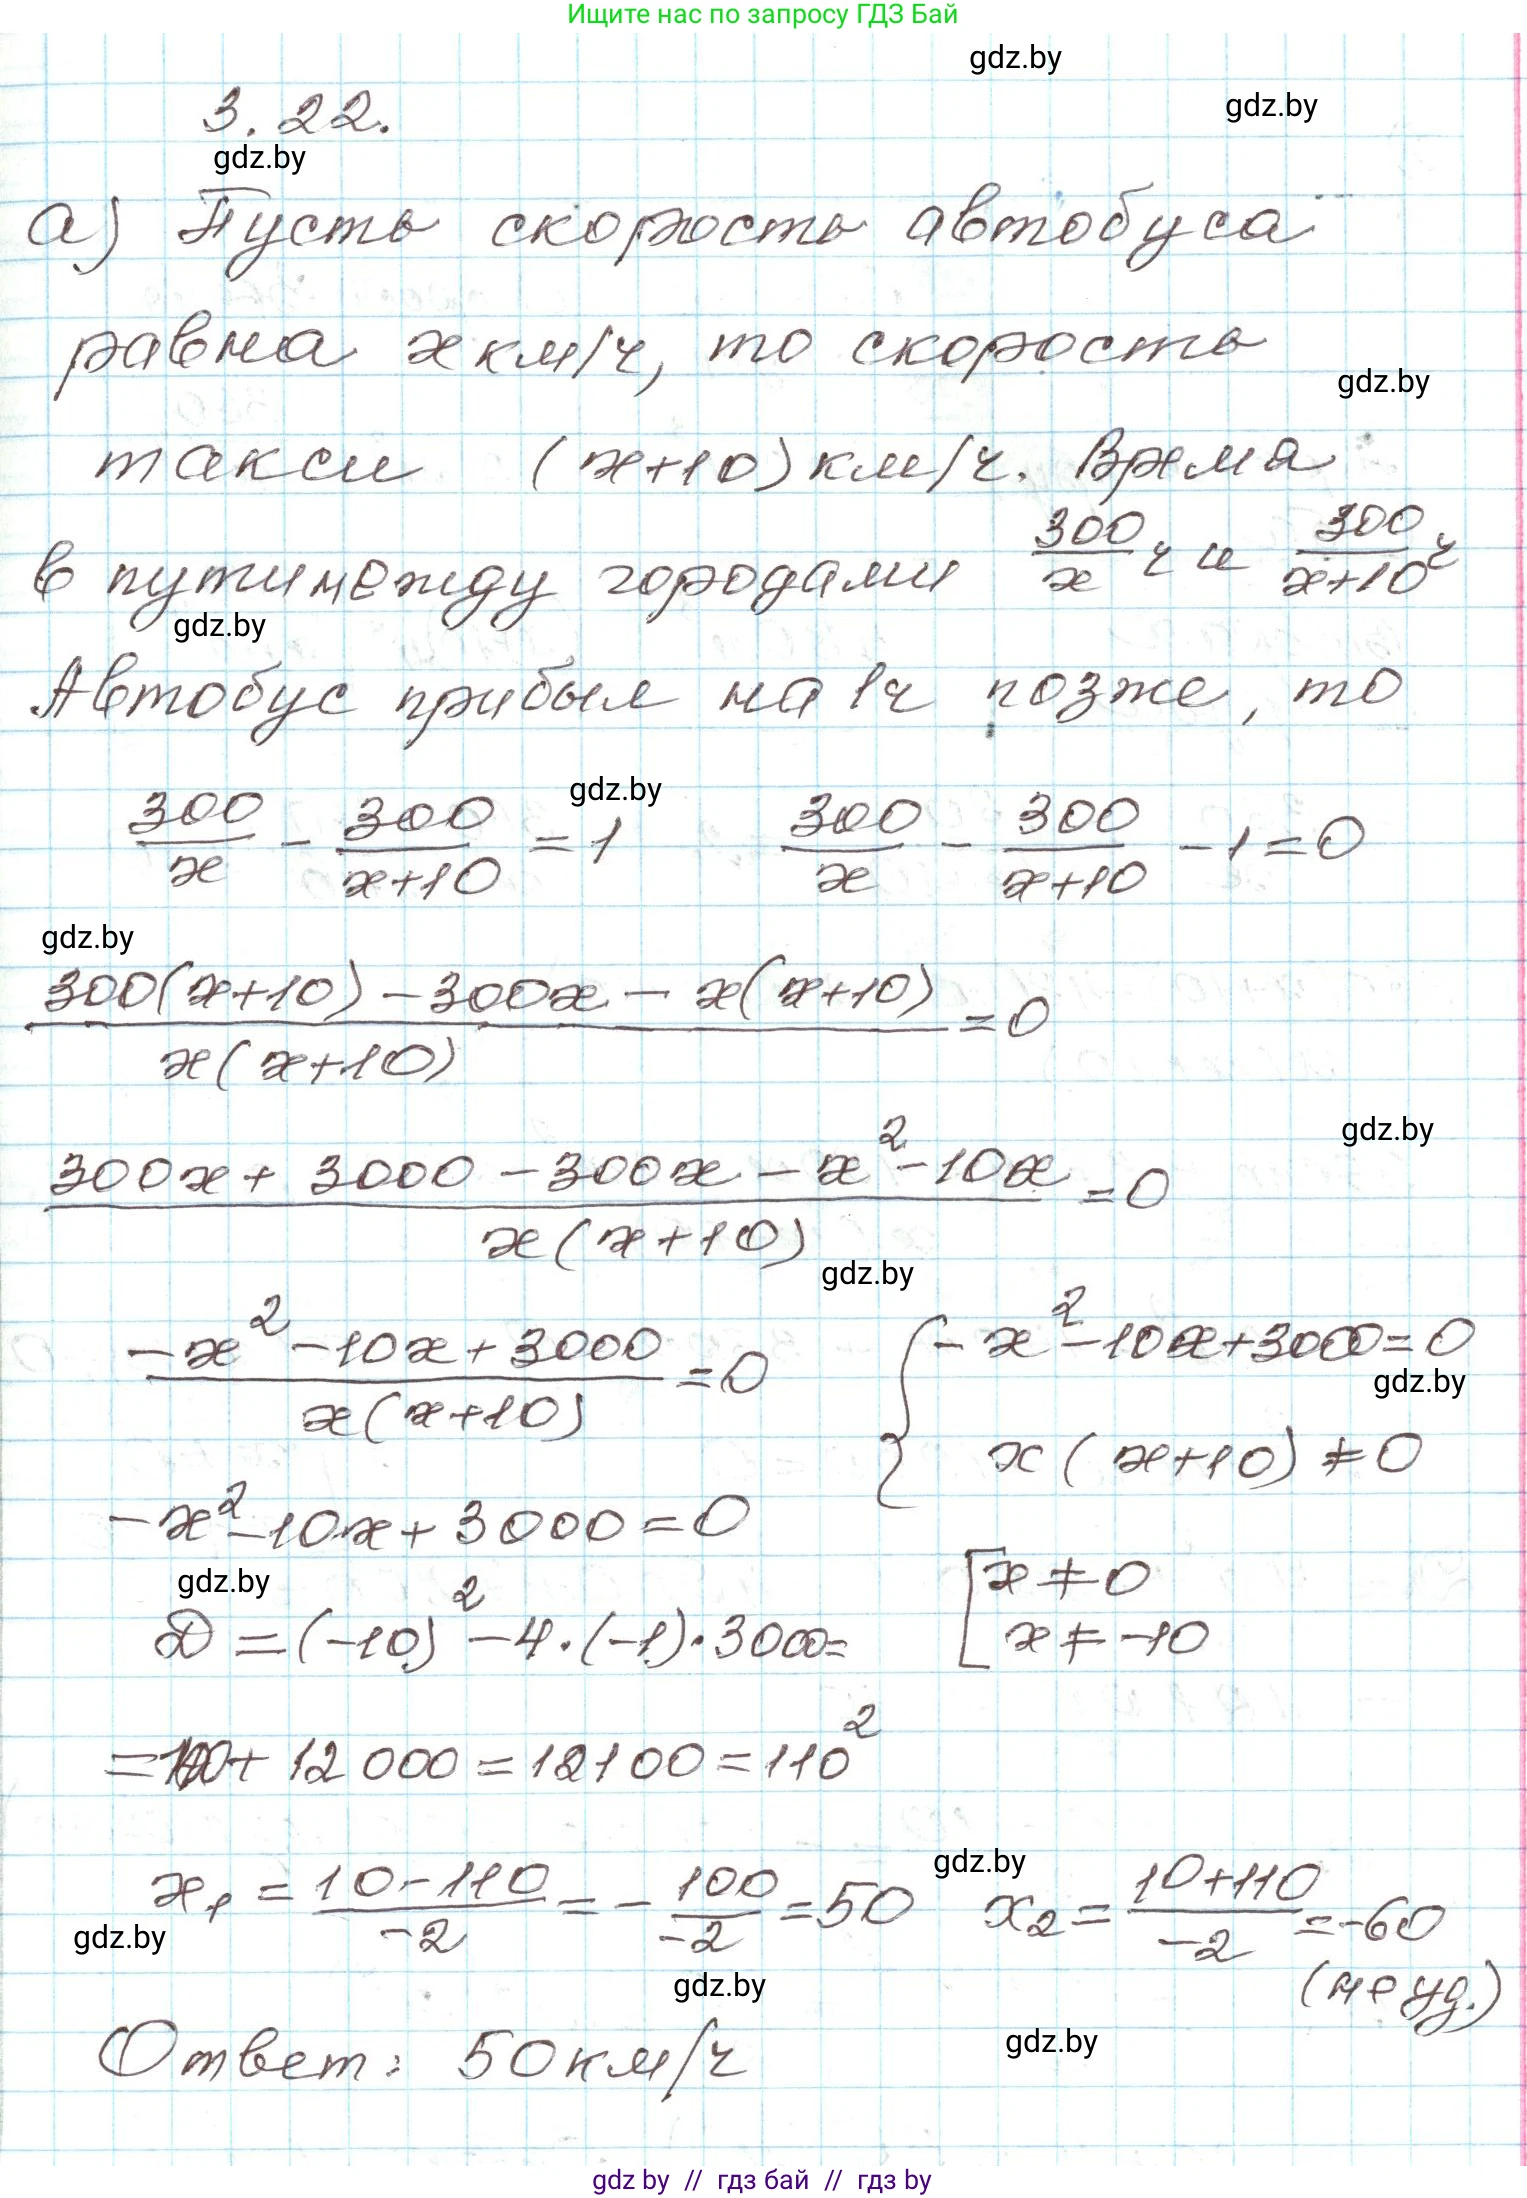 Ищите нас по запросу ГДЗ Бай
gdz.by
gdz.by
3.22.
gdz.by
а) Пусть скорость автобуса
равна x км/ч, то скорость
gdz.by
такси (x+10) км/ч. Время
в пути между городами 300/x ч и 300/x+10 ч
gdz.by
Автобус прибыл на 1ч позже, то
gdz.by
300/x - 300/x+10 = 1 300/x - 300/x+10 - 1 = 0
gdz.by
300(x+10) - 300x - x(x+10) / x(x+10) = 0
gdz.by
300x + 3000 - 300x - x² - 10x / x(x+10) = 0
gdz.by
-x² - 10x + 3000 / x(x+10) = 0 { -x² - 10x + 3000 = 0
gdz.by
x(x+10) ≠ 0
-x² - 10x + 3000 = 0
gdz.by
[ x ≠ 0
x ≠ -10
D = (-10)² - 4·(-1)·3000 =
= 100 + 12 000 = 12100 = 110²
gdz.by
x₁ = 10-110/-2 = - 100/-2 = 50 x₂ = 10+110/-2 = -60
gdz.by
(не уд.)
gdz.by
Ответ: 50 км/ч
gdz.by
gdz by // гдз бай // гдз by